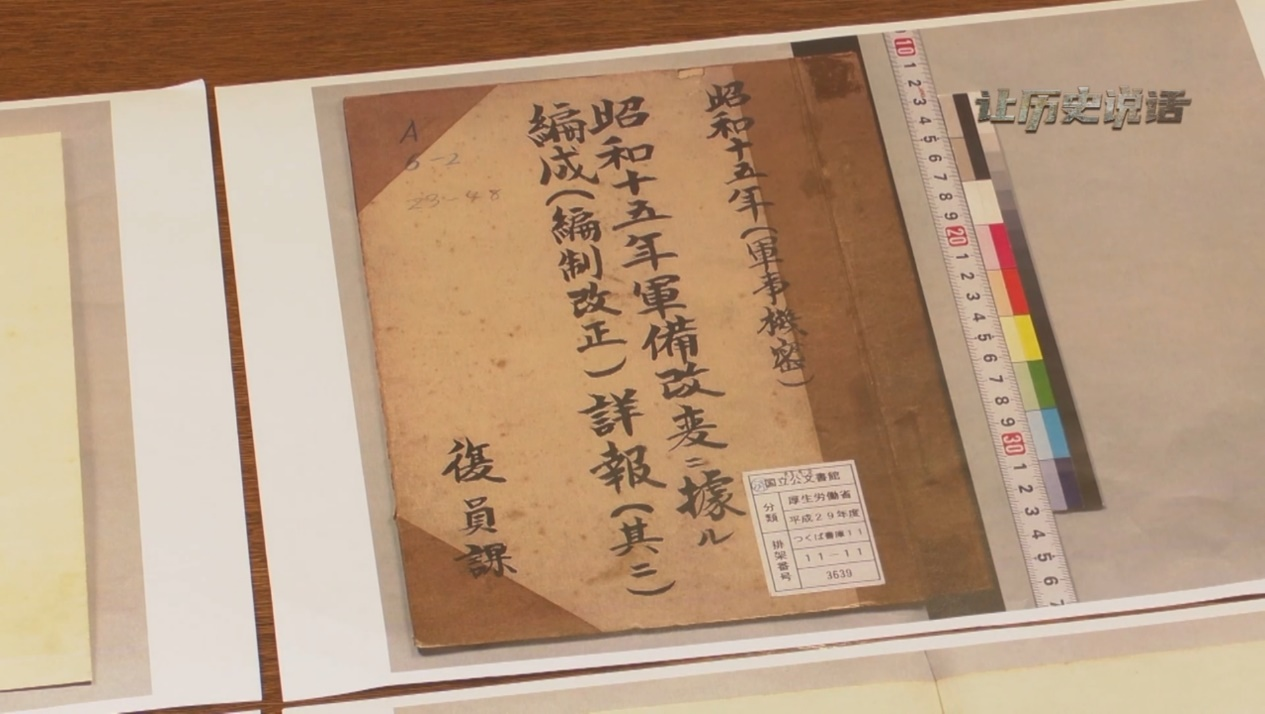 昭和十五年(軍事機密)
昭和十五年軍備改変ニ據ル
編成(編制改正)詳報(其二)
復員課
A
23-48
国立公文書館
分類
厚生労働省
平成29年度
つくば書庫11
排架番号
11-11
3639
10 1 2 3 4 5 6 7 8 9 20 1 2 3 4 5 6 7 8 9 30 1 2 3 4 5 6 7
让历史说话